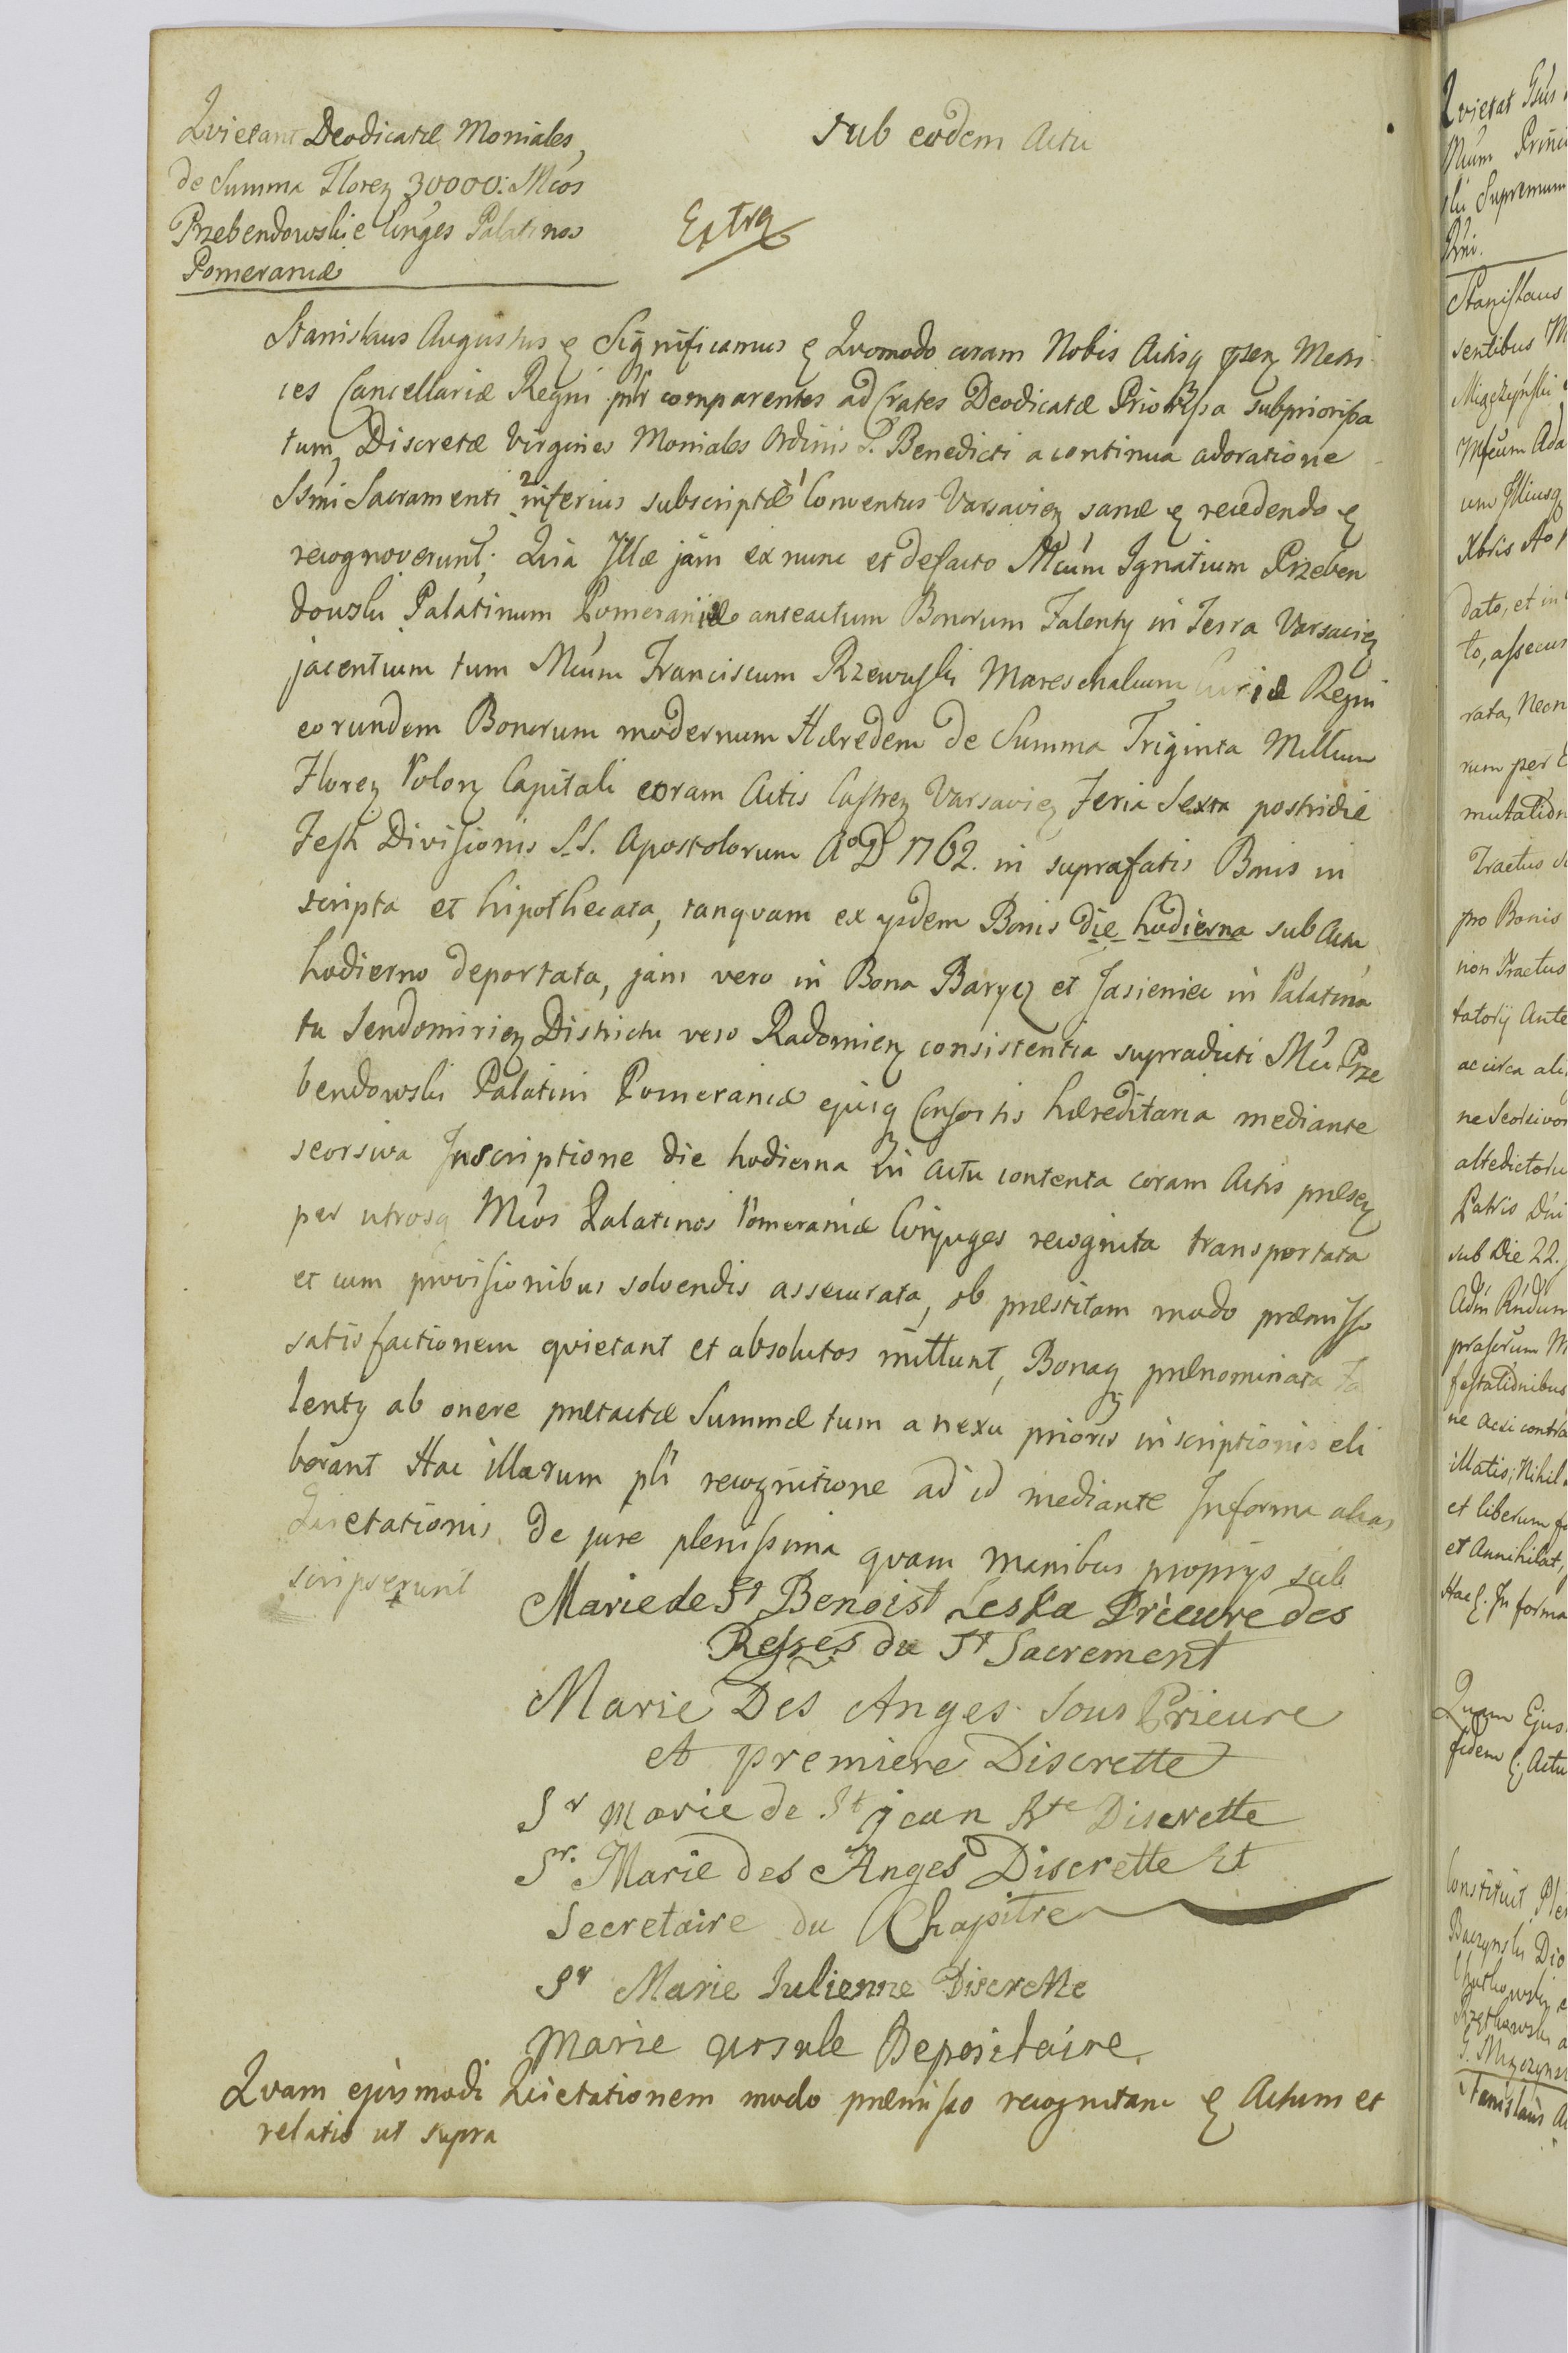 Qvietant Deodicatæ Moniales,
de Summa Floren 30000: Mcos
Przebendowskie Conges Palatinos
Pomeraniæ
Sub eodem Actu
Extra
Stanislaus Augustus & Significamus & Qvomodo coram Nobis Actisq psen Metri
ces Cancellariæ Regni plr comparentes ad Crates Deodicatæ Priorissa subpriorissa
tum, Discretæ Virgines Moniales Ordinis S. Benedicti a continua adoratione
SSmi Sacramenti 2 inferius subscriptæ 1 Conventus Varsavien sanæ & recedendo &
recognoverunt; Qvia Illæ jam ex nunc et defacto Mcum Ignatium Przeben
dowski Palatinum Pomeraniæ anteactum Bonorum Falenty in Terra Varsavien
jacentium tum Mcum Franciscum Rzewuski Mareschalcum Curiæ Regni
eorundem Bonorum modernum Hæredem de Summa Triginta Millium
Floren Polon Capitali coram Actis Castren Varsavien Feria Sexta postridie
Festi Divisionis S.S. Apostolorum AoD 1762. in suprafatis Bonis in
scripta et hipothecata, tanqvam ex ijsdem Bonis die hodierna sub Actu
hodierno deportata, jam vero in Bona Barycz et Jasieniec in Palatina
tu Sendomirien Districtu vero Radomien consistentia supradicti Mci Prze
bendowski Palatini Pomeraniæ ejusq Consortis hæreditaria mediante
seorsiva Inscriptione die hodierna in actu contenta coram Actis præsen
per utrosq Mcos Palatinos Pomeraniæ Conjuges recognita transportata
et cum provisionibus solvendis assecurata, ob præstitam modo præmisso
satisfactionem qvietant et absolutos mittunt, Bonaq prænominata Fa
lenty ab onere prætactæ Summæ tum a nexu prioris inscriptionis eli
berant Hac illarum pli recognitione ad id mediante Informa alias
Qvietationis de jure plenissima qvam manibus proprijs sub
scripserunt
Marie de St Benoist Leska Prieure des
Reses du St Sacrement
Marie Des Anges Sous Prieure
et premiere Discrette
Sr Marie de St jean Bte Discrette
Sr. Marie des Anges Discrette Et
Secretaire du Chapitre
Sr Marie Iulienne Discrette
Marie ursule Depositaire
Qvam ejusmodi Qvietationem modo præmisso recognitam & Actum et
relatio ut supra
Qvietat
Mcum
Supremum
Stanislaus
sentibus
Miączyński
dato, et in
rata, Necn
rum per
mutation
Tractus
pro Bonis
non Tractus
tatorij Ante
ac circa
ne Seorsivo
altedictoru
Patris Dni
sub Die 22.
festationibus
ne Acsi contra
illatis, Nihil
et liberum
et Annihilat,
Hac &. In forma
Qvam Ejus
fidem & Actu
Constituit Ple
Baczynski
Stanislaus